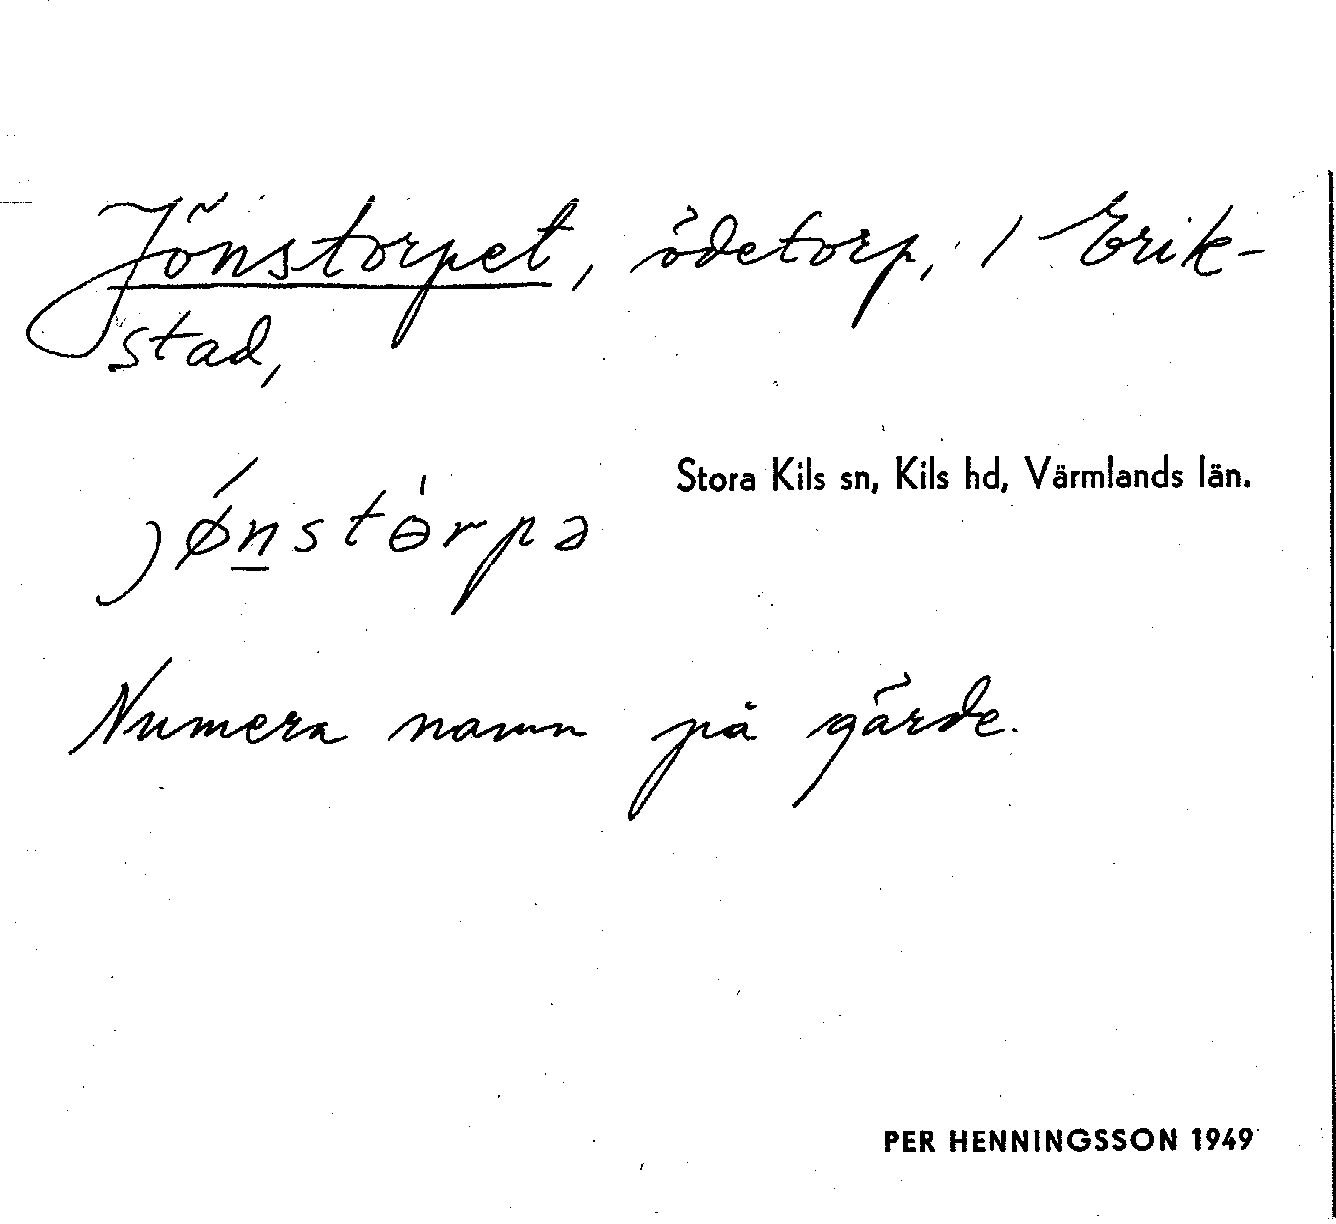 Jönstorpet, ödetorp, / Erik-
stad,
Stora Kils sn, Kils hd, Värmlands län.
jǿnstɵ̀rpə
Numera namn på gärde.
PER HENNINGSSON 1949